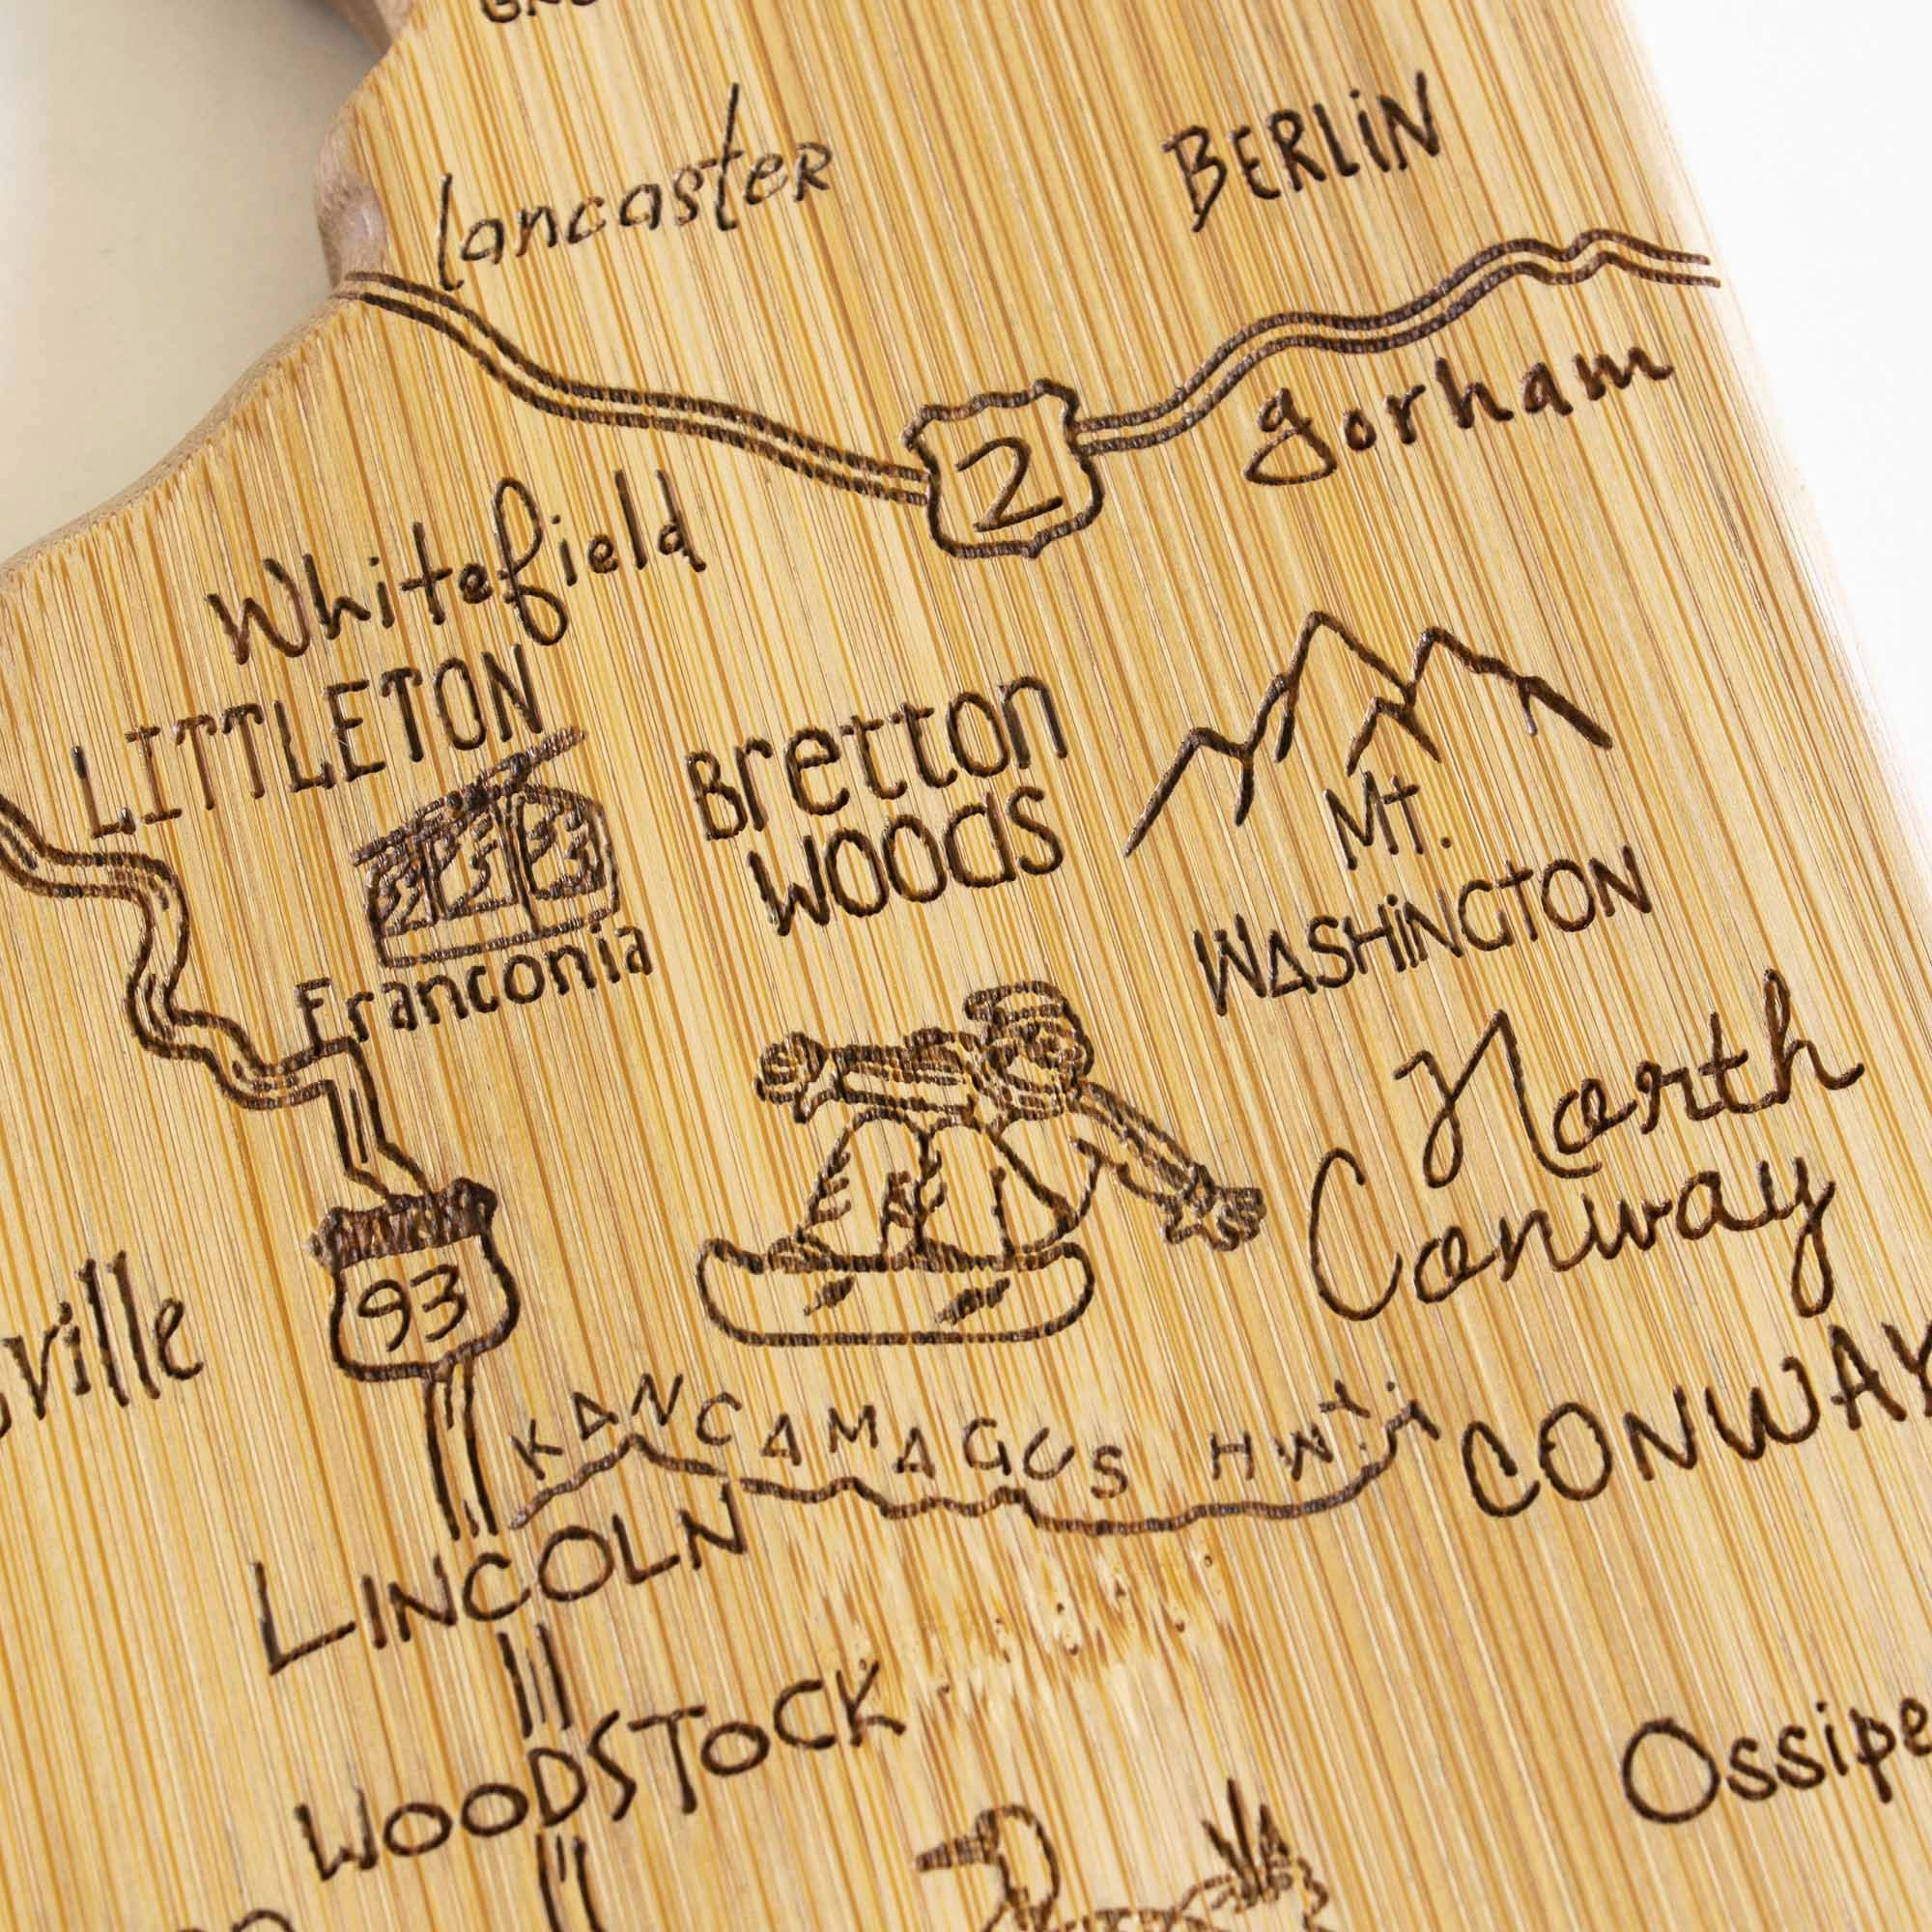 Lancaster
BERLiN
2
gorham
Whitefield
LITTLETON
Bretton
WOODS
Mt.
WASHiNGTON
Franconia
North
Conway
93
ville
KANCAMAGUS HWY
CONWAY
LINCOLN
WOODSTOCK
Ossipe